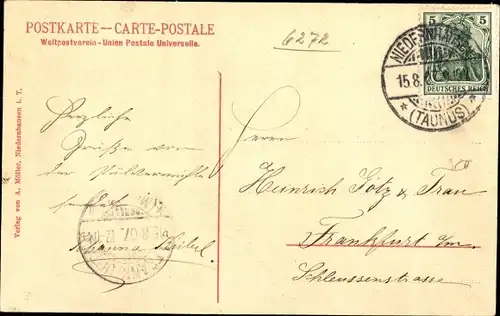 POSTKARTE — CARTE-POSTALE
Weltpostverein - Union Postale Universelle.
6272
5 5
DEUTSCHES REICH
NIEDERNHAUSEN
15.8.
* (TAUNUS) *
Verlag von A. Müller, Niedernhausen i. T.
Herzliche
Grüße von
der
sendet
Johanna
8.07
Herrn
Heinrich Götz & Frau
Frankfurt a/m.
Schleussenstrasse